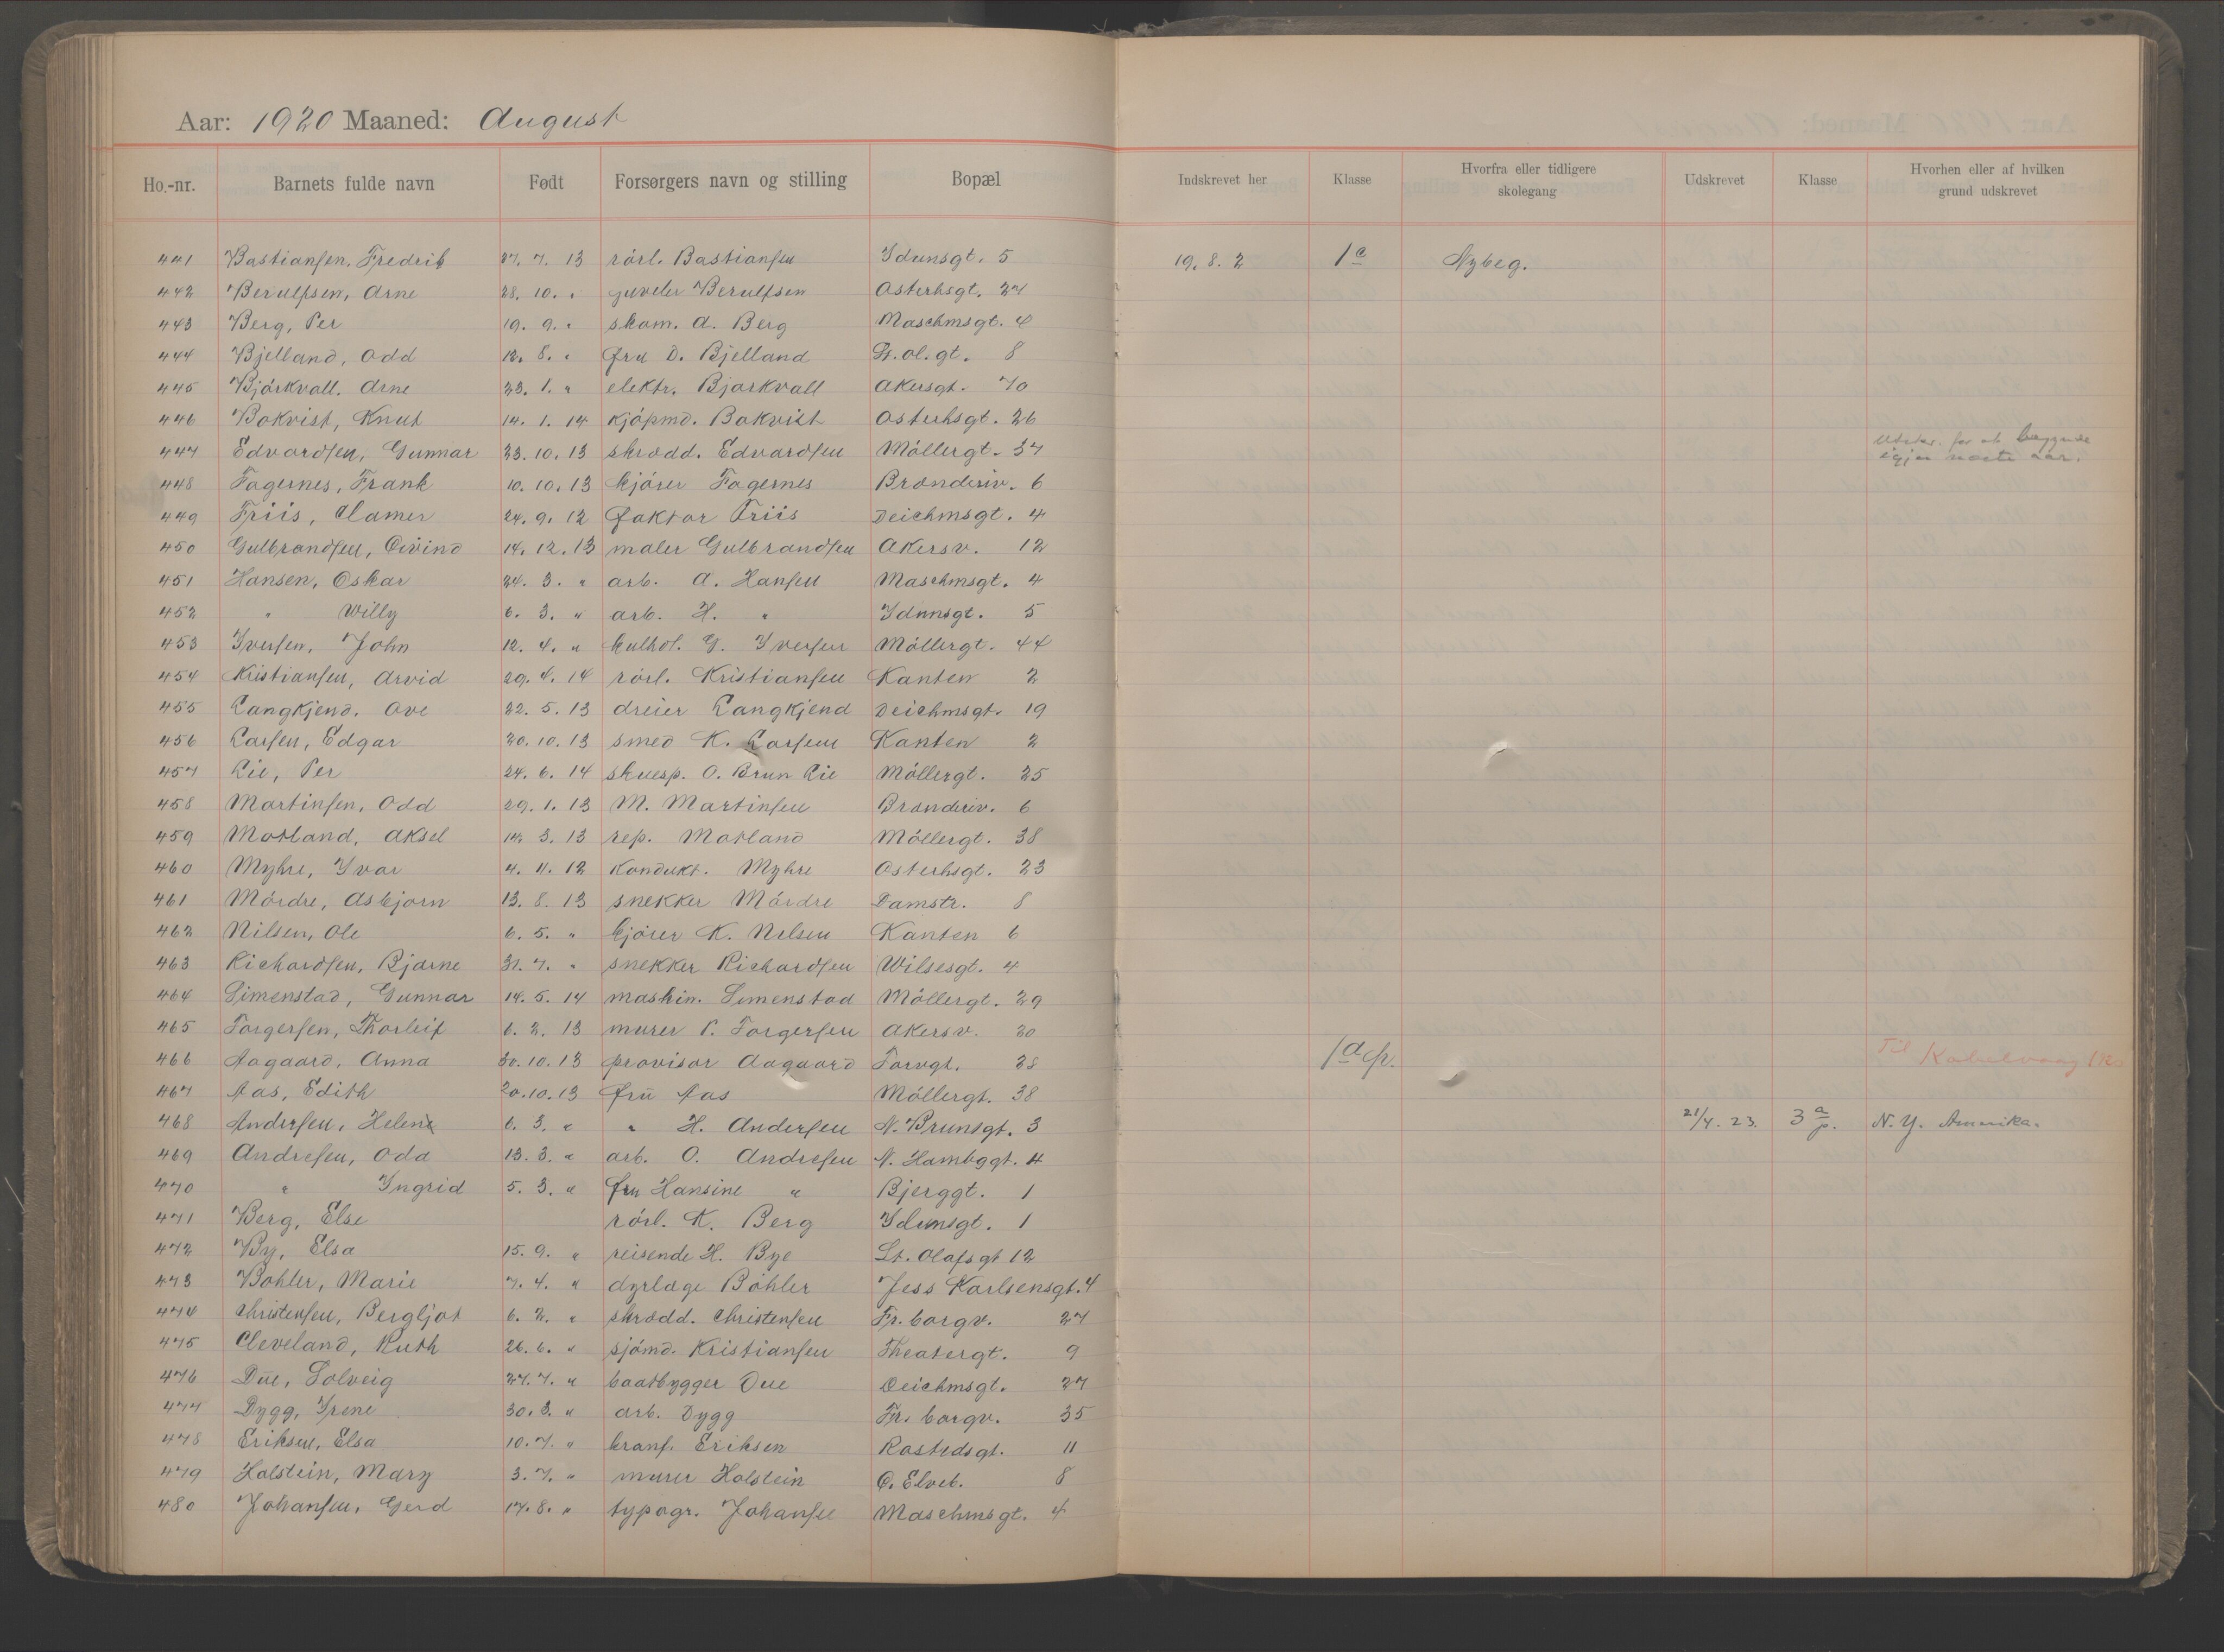 Aar: 1920 Maaned: August
Ho.-nr. Barnets fulde navn Født Forsørgers navn og stilling Bopæl Indskrevet her Klasse Hvorfra eller tidligere skolegang Udskrevet Klasse Hvorhen eller af hvilken grund udskrevet
441 Bastiansen, Fredrik 27. 7. 13 rörl. Bastiansen Idunsgt. 5 19. 8. 2 1a Nybeg.
442 Berulfsen, Arne 28. 10. " juveler Berulfsen Osterhsgt. 27
443 Berg, Per 19. 9. " skom. A. Berg Maschmsgt. 4
444 Bjelland, Odd 12. 8. " fru D. Bjelland St. ol. gt. 8
445 Björkvall, Arne 23. 1. " elektr. Bjorkvall Akersgt. 70
446 Bokvist, Knut 14. 1. 14 kjöpmd. Bokvist Osterhsgt. 26
447 Edvardsen, Gunnar 23. 10. 13 skrædd. Edvardsen Möllergt. 37 Utskr. for at begynde igjen næste aar.
448 Fagernes, Frank 10. 10. 13 kjörer Fagernes Brænderiv. 6
449 Friis, Clamer 24. 9. 12 faktor Friis Deichmsgt. 4
450 Gulbrandsen, Eivind 14. 12. 13 maler Gulbrandsen Akersv. 12
451 Hansen, Oskar 24. 3. " arb. A. Hansen Maschmsgt. 4
452 " Willy 6. 3. " arb. H. " Idunsgt. 5
453 Iversen, John 12. 4. " kulhdl. G. Iversen Möllergt. 44
454 Kristiansen, Arvid 29. 4. 14 rörl. Kristiansen Kanten 2
455 Langkjend, Ove 22. 5. 13 dreier Langkjend Deichmsgt. 19
456 Larsen, Edgar 20. 10. 13 smed K. Larsen Kanten 2
457 Lie, Per 24. 6. 14 skuesp. O. Brun Lie Möllergt. 25
458 Martinsen, Odd 29. 1. 13 M. Martinsen Brænderiv. 6
459 Motland, Aksel 14. 3. 13 rep. Motland Möllergt. 38
460 Myhre, Ivar 4. 11. 12 Kondukt. Myhre Osterhsgt. 23
461 Mördre, Asbjørn 13. 8. 13 snekker Mördre Damstr. 8
462 Nilsen, Ole 6. 5. " kjörer K. Nilsen Kanten 6
463 Richardsen, Bjarne 31. 7. " snekker Richardsen Wilsesgt. 4
464 Simenstad, Gunnar 14. 5. 14 maskin. Simenstad Möllergt. 29
465 Torgersen, Thorleif 6. 2. 13 murer P. Torgersen Akersv. 20
466 Aagaard, Anna 30. 10. 13 provisor Aagaard Torvgt. 28 1a p. Til Kabelvaag
467 Aas, Edith 20. 10. 13 fru Aas Möllergt. 38
468 Andersen, Helene 6. 3. " " H. Andersen N. Brunsgt. 3 21/4. 23. 3a p. N. Y. Amerika.
469 Andresen, Oda 13. 3. " arb. O. Andresen N. Hambggt. 4
470 " Ingrid 5. 3. " fru Hansine " Bjerggt. 1
471 Berg, Else rörl. K. Berg Idunsgt. 1
472 By, Elsa 15. 9. " reisende H. Bye St. Olafsgt 12
473 Bøhler, Marie 7. 4. " dyrlæge Böhler Jess Karlsensgt. 4
474 Christensen, Bergljot 6. 2. " skrædd. Christensen Fr. borgv. 27
475 Cleveland, Ruth 26. 6. " sjömd. Kristiansen Theatergt. 9
476 Due, Solveig 27. 7. " baatbygger Due Deichmsgt. 27
477 Dygg, Irene 30. 3. " arb. Dygg Fr. borgv. 35
478 Eriksen, Elsa 10. 7. " Eriksen Rostedsgt. 11
479 Holstein, Mary 3. 7. " murer Holstein O. Elveb. 8
480 Johansen, Gerd 17. 8. " typogr. Johansen Maschmsgt. 4